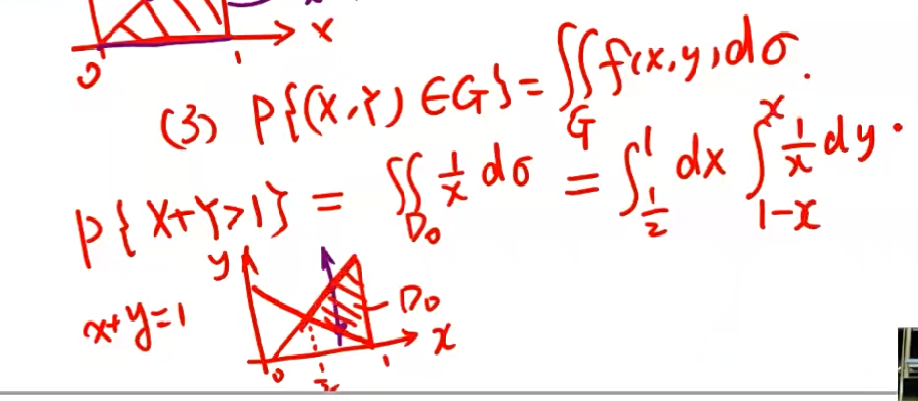 0 1 x
(3) P{(X,Y)∈G}=∬_G f(x,y)dσ.
P{X+Y>1} = ∬_{D₀} 1/x dσ = ∫_{1/2}^{1} dx ∫_{1-x}^{x} 1/x dy.
y
x+y=1 D₀ x
0 1/2 1